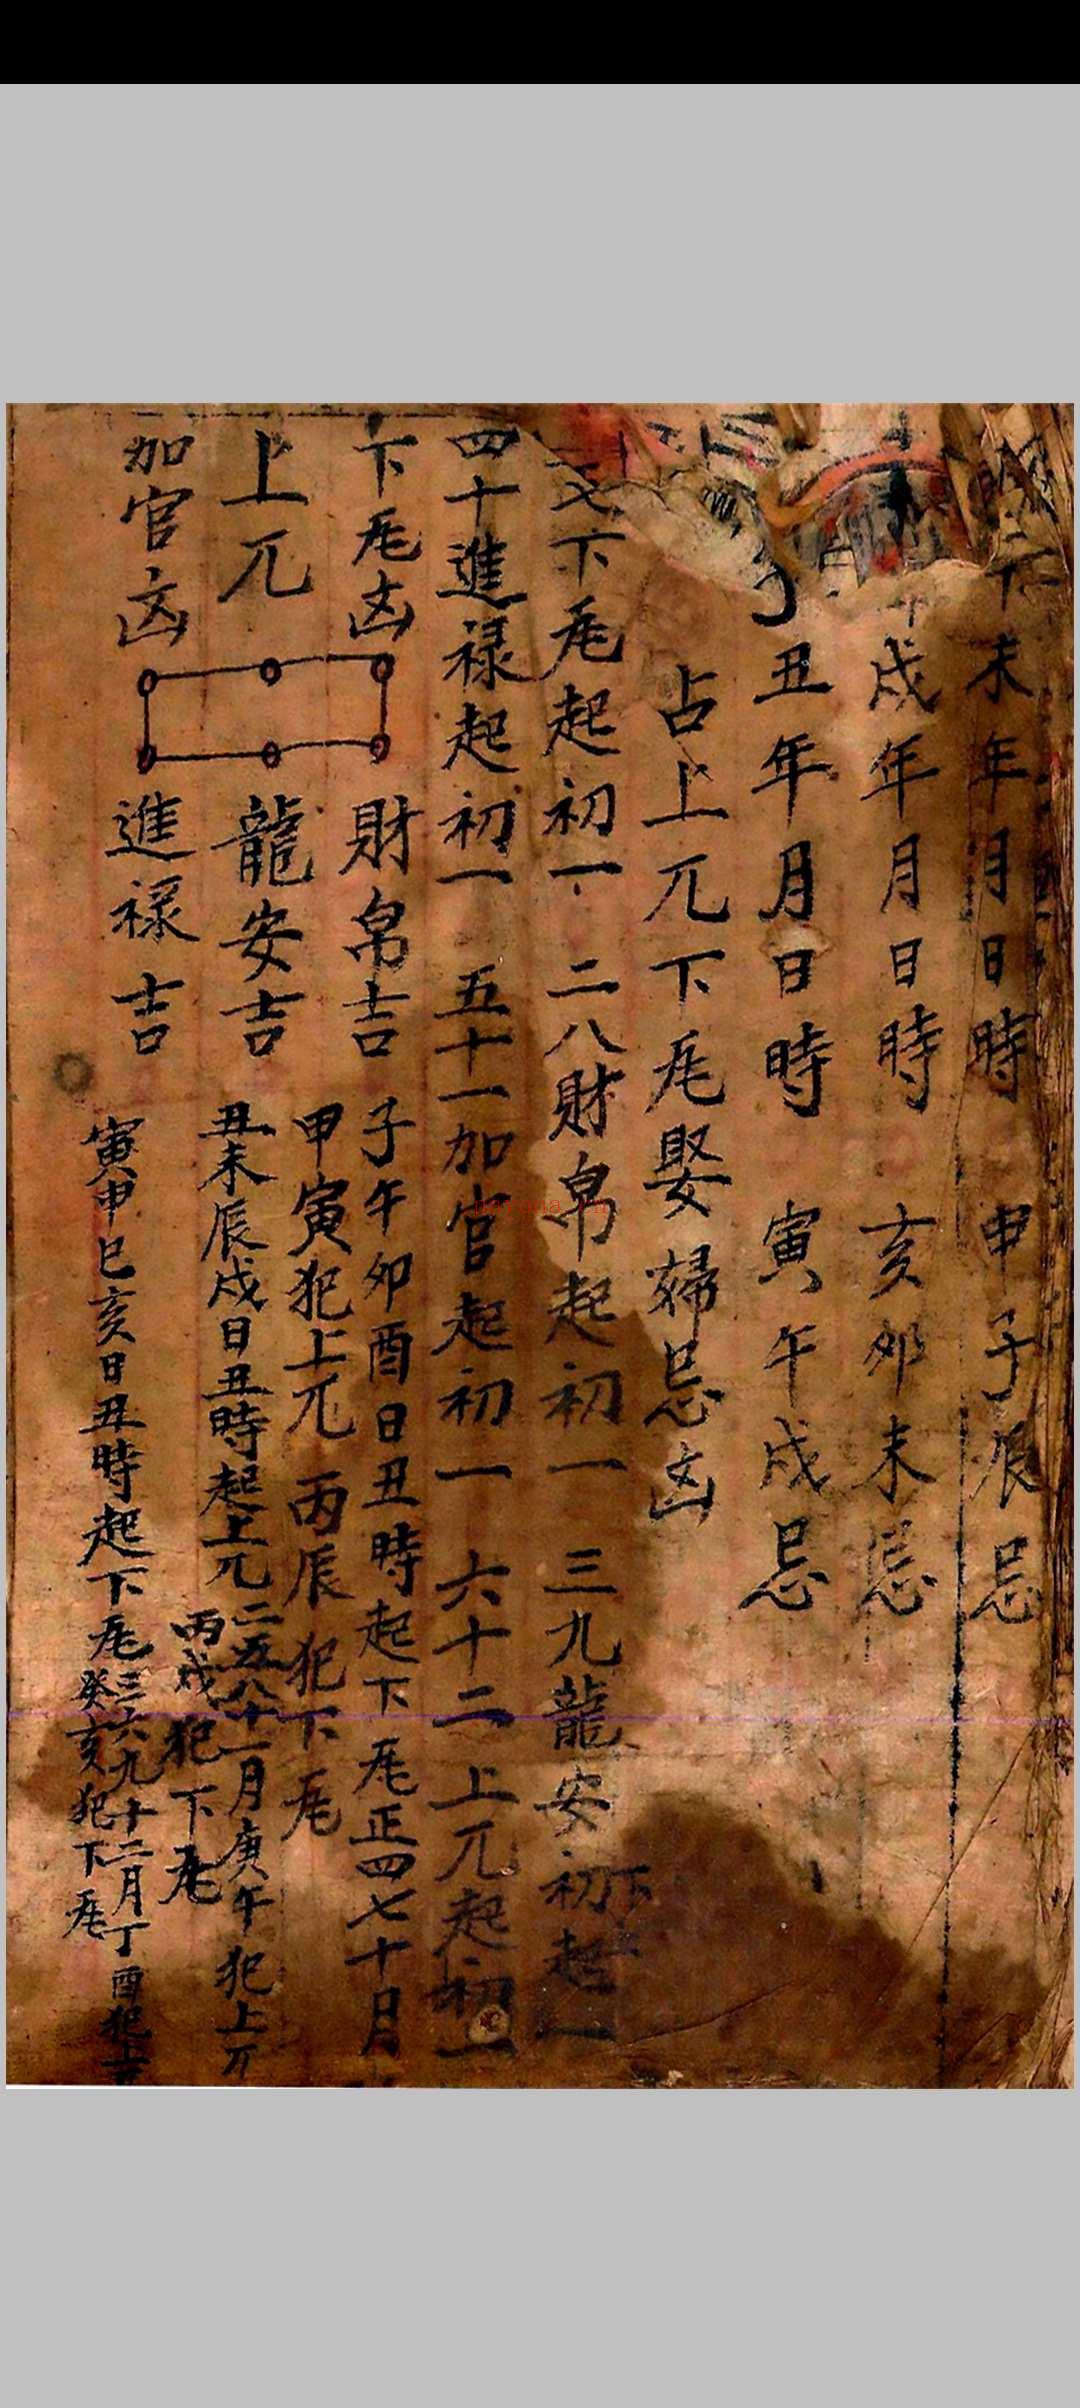 未年月日時 申子辰忌
戌年月日時 亥卯未忌
丑年月日時 寅午戌忌
占上兀下𡯁娶婦忌凶
七下𡯁起初一 二八財帛起初一 三九龍安初起一
四十進禄起初一 五十一加官起初一 六十二上兀起初一
下𡯁凶
上兀
加官凶
財帛吉
龍安吉
進禄吉
子午卯酉日丑時起下𡯁正四七十月
甲寅犯上兀 丙辰犯下𡯁
丑未辰戌日丑時起上兀二五八十一月庚午犯上兀
丙戌犯下𡯁
寅申巳亥日丑時起下𡯁三六九十二月丁酉犯上
癸亥犯下𡯁